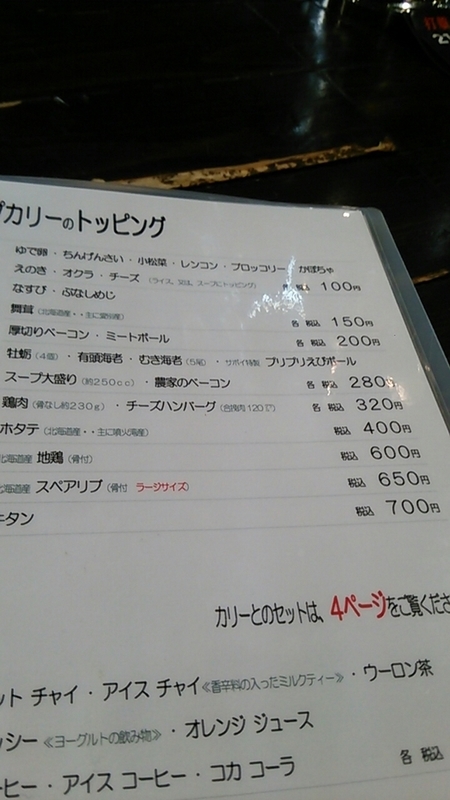 カリーのトッピング
ゆで卵・ちんげんさい・小松菜・レンコン・ブロッコリー かぼちゃ
えのき・オクラ・チーズ (ライス、又は、スープにトッピング) 税込 100円
なすび・ぶなしめじ
舞茸 (北海道産・・主に愛別産) 各 税込 150円
厚切りベーコン・ミートボール 各 税込 200円
牡蛎(4個)・有頭海老・むき海老(5尾)・サボイ特製 プリプリえびボール
スープ大盛り(約250cc)・農家のベーコン 各 税込 280円
鶏肉(骨なし約230g)・チーズハンバーグ(合挽肉120㌘) 各 税込 320円
ホタテ(北海道産・・主に噴火湾産) 税込 400円
北海道産 地鶏(骨付) 税込 600円
北海道産 スペアリブ(骨付 ラージサイズ) 税込 650円
タン 税込 700円
カリーとのセットは、4ページをご覧くださ
ット チャイ・アイス チャイ《香辛料の入ったミルクティー》・ウーロン茶
ッシー《ヨーグルトの飲み物》・オレンジ ジュース
ーヒー・アイス コーヒー・コカ コーラ 各 税込